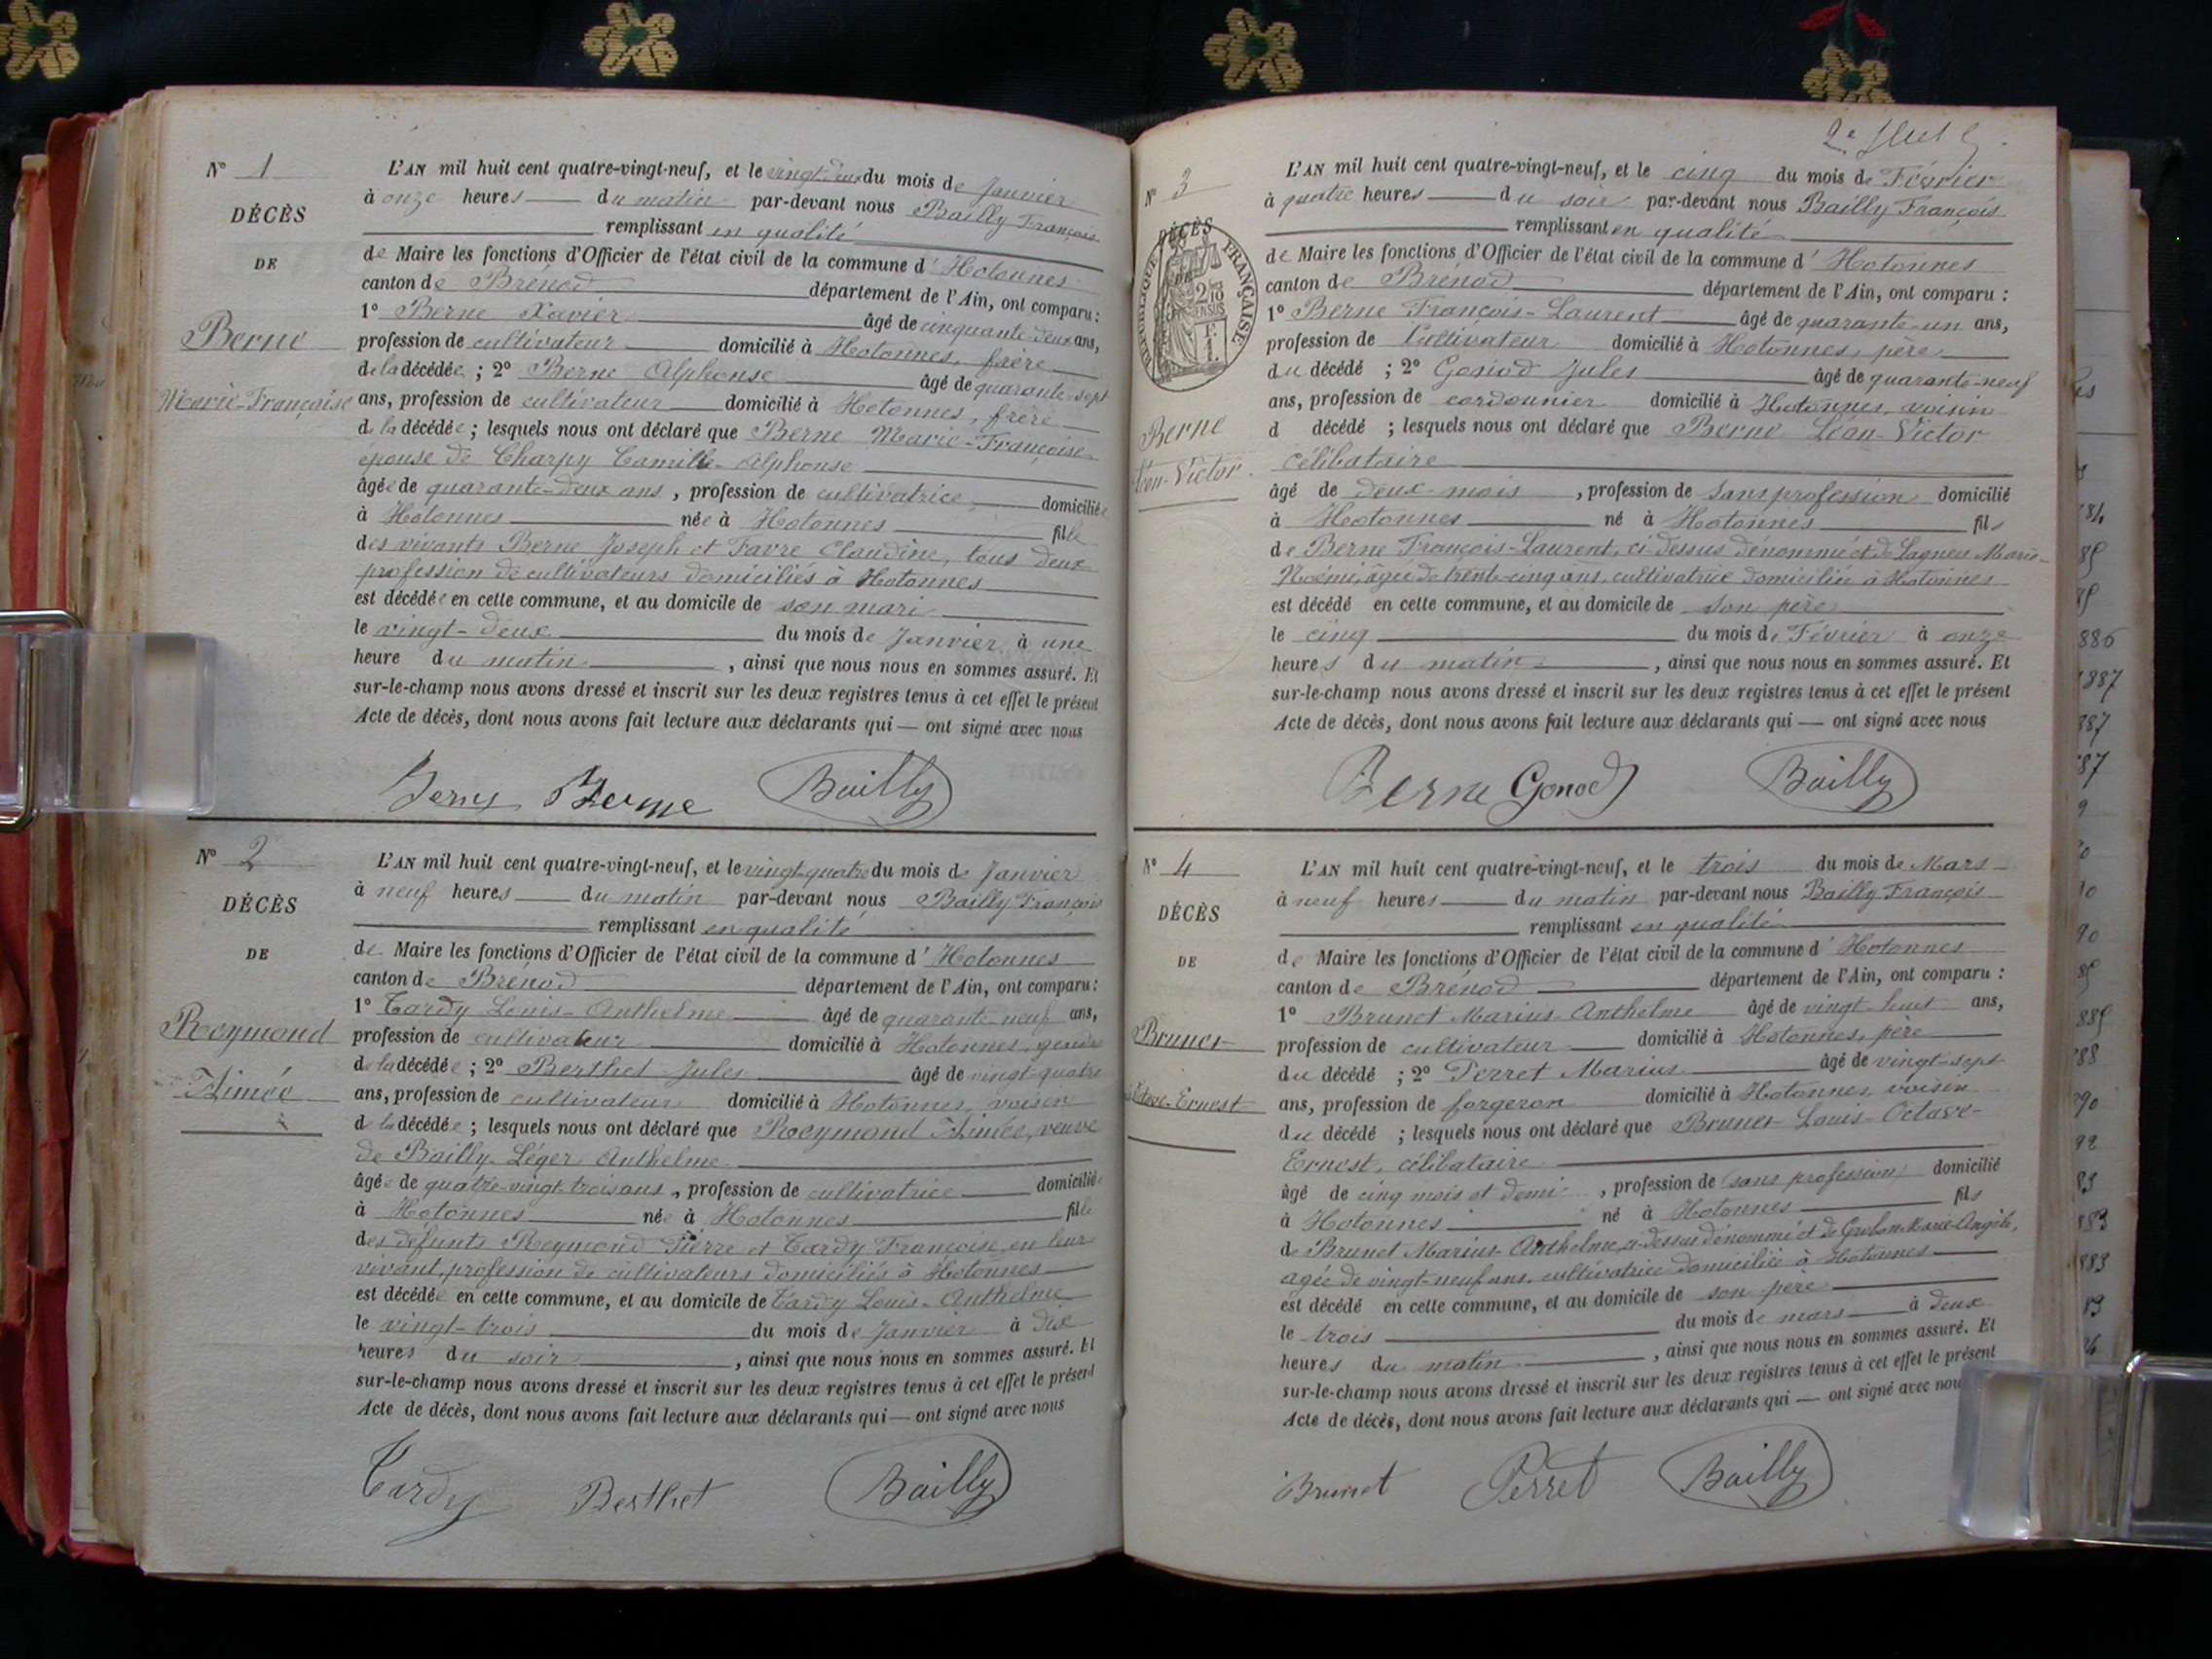 N° 1
DÉCÈS
DE
Berne
Marie-Françoise
L'AN mil huit cent quatre-vingt-neuf, et le vingt-deux du mois de Janvier
à onze heures du matin par-devant nous Bailly François
remplissant en qualité
de Maire les fonctions d'Officier de l'état civil de la commune d'Hotonnes
canton de Brénod département de l'Ain, ont comparu :
1° Berne Xavier âgé de cinquante-deux ans,
profession de cultivateur domicilié à Hotonnes, frère
de la décédée ; 2° Berne Alphonse âgé de quarante-sept
ans, profession de cultivateur domicilié à Hotonnes, frère
de la décédée ; lesquels nous ont déclaré que Berne Marie-Françoise
épouse de Charpy Camille-Alphonse
âgée de quarante-deux ans, profession de cultivatrice domiciliée
à Hotonnes née à Hotonnes fille
des vivants Berne Joseph et Favre Claudine, tous deux
profession de cultivateurs domiciliés à Hotonnes
est décédée en cette commune, et au domicile de son mari
le vingt-deux du mois de Janvier à une
heure du matin, ainsi que nous nous en sommes assuré. Et
sur-le-champ nous avons dressé et inscrit sur les deux registres tenus à cet effet le présent
Acte de décès, dont nous avons fait lecture aux déclarants qui — ont signé avec nous
Berne Berne Bailly
N° 2
DÉCÈS
DE
Reymond
Aimée
L'AN mil huit cent quatre-vingt-neuf, et le vingt-quatre du mois de Janvier
à neuf heures du matin par-devant nous Bailly François
remplissant en qualité
de Maire les fonctions d'Officier de l'état civil de la commune d'Hotonnes
canton de Brénod département de l'Ain, ont comparu :
1° Tardy Louis-Anthelme âgé de quarante-neuf ans,
profession de cultivateur domicilié à Hotonnes, gendre
de la décédée ; 2° Berthet Jules âgé de vingt-quatre
ans, profession de cultivateur domicilié à Hotonnes, voisin
de la décédée ; lesquels nous ont déclaré que Reymond Aimée, veuve
de Bailly Léger Anthelme
âgée de quatre-vingt-trois ans, profession de cultivatrice domiciliée
à Hotonnes née à Hotonnes fille
des défunts Reymond Pierre et Tardy Françoise, en leur
vivant, profession de cultivateurs domiciliés à Hotonnes
est décédée en cette commune, et au domicile de Tardy Louis-Anthelme
le vingt-trois du mois de Janvier à dix
heures du soir, ainsi que nous nous en sommes assuré. Et
sur-le-champ nous avons dressé et inscrit sur les deux registres tenus à cet effet le présent
Acte de décès, dont nous avons fait lecture aux déclarants qui — ont signé avec nous
Tardy Berthet Bailly
N° 3
DÉCÈS
RÉPUBLIQUE FRANÇAISE
Berne
Léon-Victor
L'AN mil huit cent quatre-vingt-neuf, et le cinq du mois de Février
à quatre heures du soir par-devant nous Bailly François
remplissant en qualité
de Maire les fonctions d'Officier de l'état civil de la commune d'Hotonnes
canton de Brénod département de l'Ain, ont comparu :
1° Berne François-Laurent âgé de quarante-un ans,
profession de Cultivateur domicilié à Hotonnes, père
du décédé ; 2° Gonod Jules âgé de quarante-neuf
ans, profession de cordonnier domicilié à Hotonnes, voisin
d décédé ; lesquels nous ont déclaré que Berne Léon-Victor
célibataire
âgé de deux mois, profession de sans profession domicilié
à Hotonnes né à Hotonnes fils
de Berne François-Laurent, ci-dessus dénommé et de Lagneu Marie-
Noémi, âgée de trente-cinq ans, cultivatrice domiciliée à Hotonnes
est décédé en cette commune, et au domicile de son père
le cinq du mois de Février à onze
heures du matin, ainsi que nous nous en sommes assuré. Et
sur-le-champ nous avons dressé et inscrit sur les deux registres tenus à cet effet le présent
Acte de décès, dont nous avons fait lecture aux déclarants qui — ont signé avec nous
Berne Gonod Bailly
N° 4
DÉCÈS
DE
Brunet
Octave-Ernest
L'AN mil huit cent quatre-vingt-neuf, et le trois du mois de Mars
à neuf heures du matin par-devant nous Bailly François
remplissant en qualité
de Maire les fonctions d'Officier de l'état civil de la commune d'Hotonnes
canton de Brénod département de l'Ain, ont comparu :
1° Brunet Marius Anthelme âgé de vingt-huit ans,
profession de cultivateur domicilié à Hotonnes, père
du décédé ; 2° Perret Marius âgé de vingt-sept
ans, profession de forgeron domicilié à Hotonnes, voisin
du décédé ; lesquels nous ont déclaré que Brunet Louis-Octave-
Ernest, célibataire
âgé de cinq mois et demi, profession de (sans profession) domicilié
à Hotonnes né à Hotonnes fils
de Brunet Marius Anthelme, ci-dessus dénommé et de Marie-Angèle,
agée de vingt-neuf ans, cultivatrice domiciliée à Hotonnes
est décédé en cette commune, et au domicile de son père
le trois du mois de mars à deux
heures du matin, ainsi que nous nous en sommes assuré. Et
sur-le-champ nous avons dressé et inscrit sur les deux registres tenus à cet effet le présent
Acte de décès, dont nous avons fait lecture aux déclarants qui — ont signé avec nous
Brunet Perret Bailly